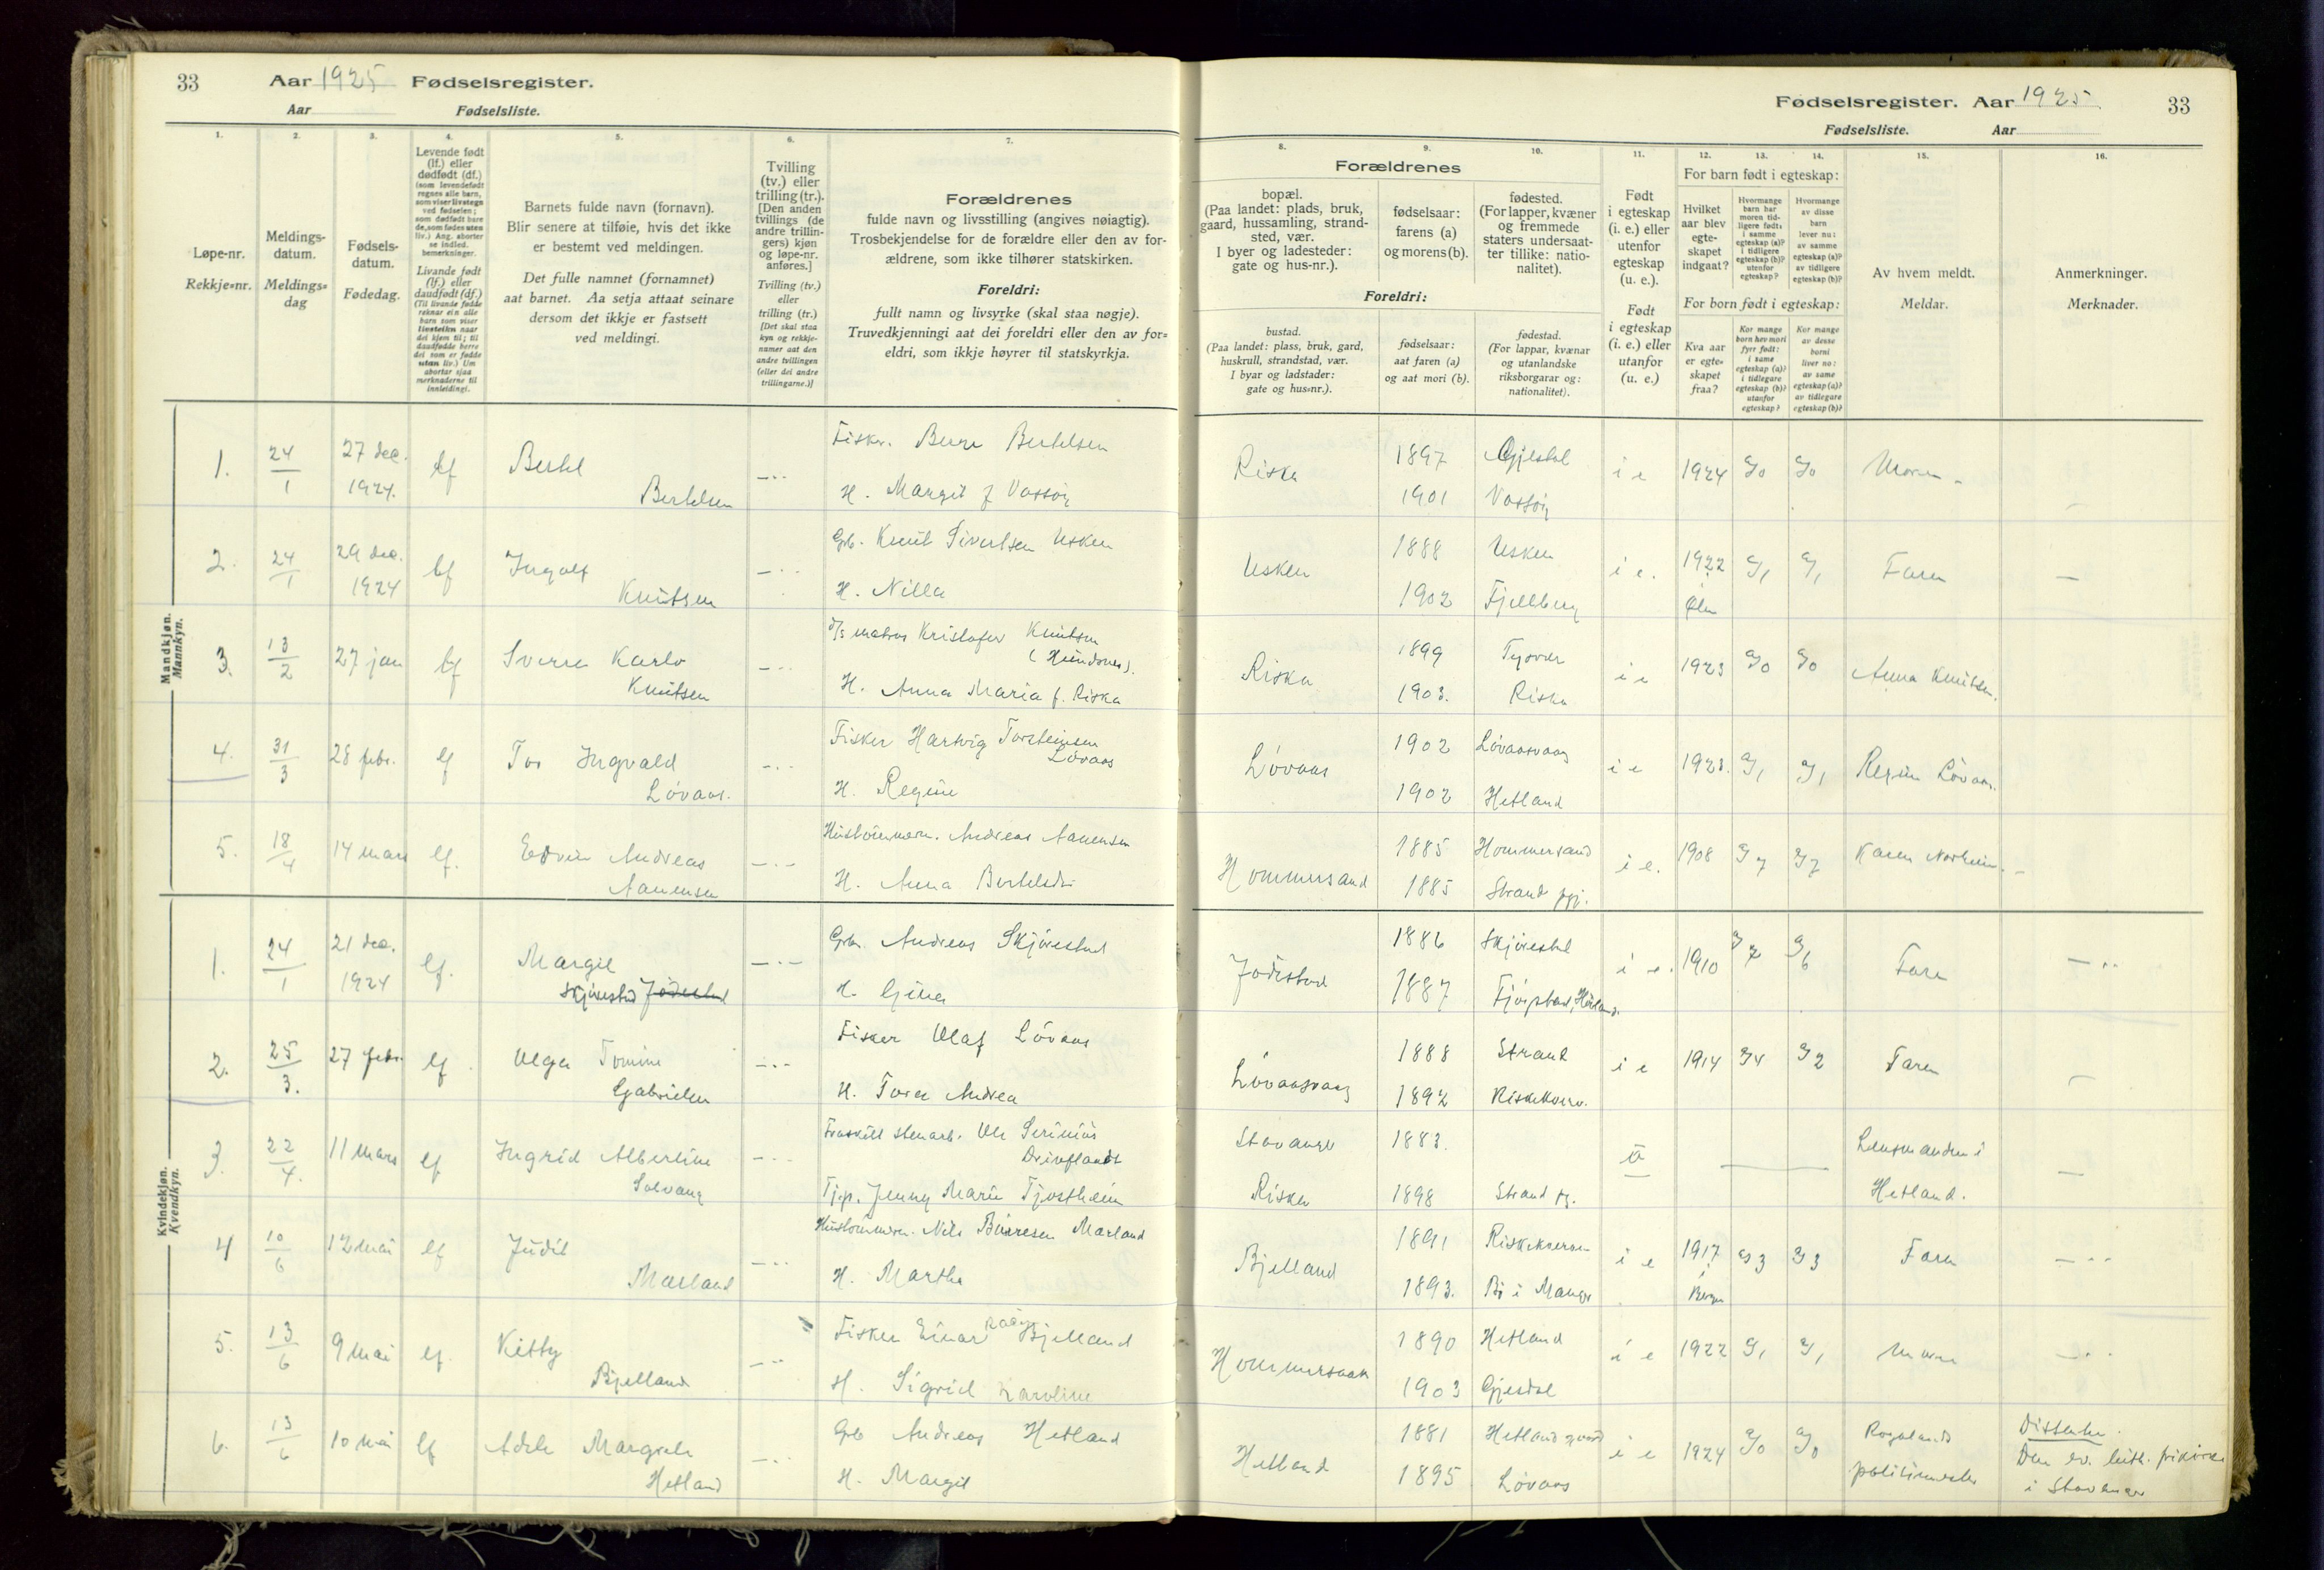 33 Aar 1925 Fødselsregister.
Aar Fødselsliste.
Fødselsregister. Aar 1925. 33
Fødselsliste. Aar
1. 2. 3. 4. 5. 6. 7.
Løpe-nr.
Rekkje=nr.
Meldings-
datum.
Meldings=
dag
Fødsels-
datum.
Fødedag.
Levende født
(lf.) eller
dødfødt (df.)
(som levendefødt
regnes alle barn,
som viser livstegn
ved fødselen;
som dødfødt bare
de, som fødes uten
liv.) Ang. aborter
se indled.
bemerkninger.
Livande født
(lf.) eller
daudfødt (df.)
(Til livande fødde
reknar ein alle
born som viser
livsteikn naar
dei kjem til; til
daudfødde berre
dei som er fødde
utan liv.) Um
abortar sjaa
merknaderne til
innleidingi.
Barnets fulde navn (fornavn).
Blir senere at tilføie, hvis det ikke
er bestemt ved meldingen.
Det fulle namnet (fornamnet)
aat barnet. Aa setja attaat seinare
dersom det ikkje er fastsett
ved meldingi.
Tvilling
(tv.) eller
trilling (tr.).
[Den anden
tvillings (de
andre trillin-
gers) kjøn
og løpe-nr.
anføres.]
Tvilling (tv.)
eller
trilling (tr.)
[Det skal staa
kyn og rekkje-
numer aat den
andre tvillingen
(eller dei andre
trillingarne.)]
Forældrenes
fulde navn og livsstilling (angives nøiagtig).
Trosbekjendelse for de forældre eller den av for-
ældrene, som ikke tilhører statskirken.
Foreldri:
fullt namn og livsyrke (skal staa nøgje).
Truvedkjenningi aat dei foreldri eller den av for=
eldri, som ikkje høyrer til statskyrkja.
8. 9. 10. 11. 12. 13. 14. 15. 16.
Forældrenes
bopæl.
(Paa landet: plads, bruk,
gaard, hussamling, strand-
sted, vær.
I byer og ladesteder:
gate og hus-nr.).
fødselsaar:
farens (a)
og morens (b).
fødested.
(For lapper, kvæner
og fremmede
staters undersaat-
ter tillike: natio-
nalitet).
Foreldri:
bustad.
(Paa landet: plass, bruk, gard,
huskrull, strandstad, vær.
I byar og ladstader:
gate og hus=nr.).
fødselsaar:
aat faren (a)
og aat mori (b).
fødestad.
(For lappar, kvænar
og utanlandske
riksborgarar og:
nationalitet).
Født
i egteskap
(i. e.) eller
utenfor
egteskap
(u. e.).
Født
i egteskap
(i. e.) eller
utanfor
egteskap
(u. e.)
For barn født i egteskap:
Hvilket
aar blev
egte-
skapet
indgaat?
Hvormange
barn har
moren tid-
ligere født:
i samme
egteskap (a)?
i tidligere
egteskap (b)?
utenfor
egteskap?
Hvormange
av disse
barn
lever nu:
av samme
egteskap (a)?
av tidligere
egteskap (b)?
For born født i egteskap:
Kva aar
er egte-
skapet
fraa?
Kor mange
born hev mori
fyrr født:
i same
egteskap (a)?
i tidlegare
egteskap (b)?
utanfor
egteskap?
Kor mange
av desse
borni
liver no:
av same
egteskap (a)?
av tidlegare
egteskap (b)?
Av hvem meldt.
Meldar.
Anmerkninger.
Merknader.
Mandkjøn.
Mannkyn.
1. 24/1 27 dec. 1924. lf Bertel Bertelsen
Fisker. Bertelsen
H. Margit f Vossøy
Riska 1897 Gjesdal i e 1924 a/0 a/0 Moren
1901 Vossøy
2. 24/1 29 dec. 1924 lf Ingolf Knutsen
Gb. Knut Sivertsen Usken
H. Nilla
Usken 1888 Usken i e. 1922 a/1 a/1 Faren
1902 Fjellberg
3. 13/2 27 jan lf Sverre Karlo Knutsen
matros Kristofer Knutsen
H. Anna Maria f. Riska
Riska 1899 Tysvær i e 1923 a/0 a/0 Anna Knutsen.
1903. Riska
4. 31/3 28 febr. lf Tor Ingvald Lövaas.
Fisker Hartvig Torsteinsen Lövaas
H. Regine
Lövaas 1902 Lövaasvaag i e 1923. a/1 a/1 Regine Lövaas.
1902 Hetland
5. 18/4 14 mars lf. Edvin Andreas Aanensen
Andreas Aanensen
H. Anna Bertelsdtr
Hommersand 1885 Hommersand i e. 1908 a/7 a/7 Karen Norheim.
1885 Strand pgj.
Kvindekjøn.
Kvendkyn.
1. 24/1 21 dec. 1924 lf. Margit Skjörestad Jödestad
Gbr. Andreas Skjörestad
H. Gina
Jödestad 1886 Skjörestad i e. 1910 a/7 a/6 Faren
1887
2. 25/3. 27 febr. lf Olga Tomine Gabrielsen
Fisker Olaf Lövaas
H. Tora Andrea
Lövaasvaag 1888 Strand i e 1914 a/4 a/2 Faren
1892 Riskekvern.
3. 22/4. 11 mars lf Ingrid Albertine Solvang
Fraskilt stenarb. Ole Serinius
Tjp. Jenny Marie Tjostheim
Stavanger 1883.
Riska 1898 Strand
Lensmanden i
Hetland.
4 10/6 12 mai lf Judit Marland
Nils Börresen Marland
H. Martha
Bjelland 1891 Riskekvernen i e 1917 a/3 a/3 Faren
i Bergen
1893. Bö i Manger
5. 13/6 9 mai lf. Kitty Bjelland
Fisker Einar Bjelland
H. Sigrid Karoline
Hommersaak 1890 Hetland i e 1922 a/1 a/1 Moren
1903 Gjesdal
6. 13/6 10 mai lf Adele Margrete Hetland
Gb Andreas Hetland
H. Margit
Hetland 1881 Hetland i e 1924 a/0 a/0 Rogalands
1895 Lövaas
politimester
Dissenter.
Den ev. luth. frikirke
i Stavanger